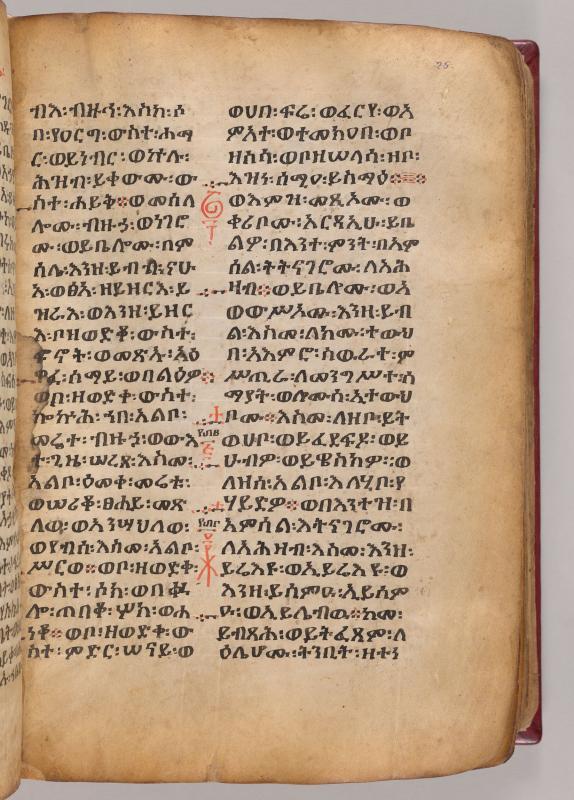 ብእ፡ብዙኅ፡እስከ፡ሶ
በ፡የዐርግ፡ውስተ፡ሐመ
ር፡ወይነብር፡ወኵሉ፡
ሕዝብ፡ይቀውሙ፡ው
ስተ፡ሐይቅ።ወመሰለ
ሎሙ፡ብዙኃ፡ወነገሮ
ሙ፡ወይቤሎሙ፡በም
ሳሌ፡እንዘ፡ይብል፡ናሁ
አ፡ወፅአ፡ዘይዘርእ፡ይ
ዝራእ፡ወእንዘ፡ይዘር
እ፡ቦዘወድቀ፡ውስተ፡
ፍኖት፡ወመጽኡ፡አዕ
ዋፈ፡ሰማይ፡ወበልዕዎ።
ወቦ፡ዘወድቀ፡ውስተ፡
ኰኵሕ፡ኀበ፡አልቦ፡
መሬተ፡ብዙኃ፡ወውእ
ተ፡ጊዜ፡ሠረጸ፡እስመ፡
አልቦ፡ዕመቀ፡መሬቱ፡
ወሠሪቆ፡ፀሐይ፡መጽ
ለወ፡ወአንሣህለወ፡
ወየብሰ፡እስመ፡አልቦ፡
ሥርወ።ወቦ፡ዘወድቀ፡
ውስተ፡ሶክ፡ወበቈ
ሎ፡ጠበቆ፡ሦክ፡ወሐ
ነቆ።ወቦ፡ዘወድቀ፡ው
ስተ፡ምድር፡ሠናይ፡ወ
ወሀበ፡ፍሬ፡ወፈርየ፡ወአ
ምእተ፡ወቦመክዐበ፡ወቦ
ዘስሳ፡ወቦዘሠላሳ፡ዘቦ፡
እዝነ፡ሰሚዐ፡ይስማዕ።
ወእምዝ፡መጺኦሙ፡ወ
ቀሪቦሙ፡አርዳኢሁ፡ይቤ
ልዎ፡በእንተ፡ምንት፡በአም
ሳል፡ትትናገሮሙ፡ለአሕ
ዛብ።ወይቤሎሙ፡ወአ
ውሥኦሙ፡እንዘ፡ይብ
ል፡እስመ፡ለክሙ፡ተውህ
በ፡አእምሮ፡ስውራተ፡ም
ሥጢረ፡ለመንግሥተ፡ሰ
ማያት፡ወሎሙሰ፡ኢተውህ
ቦሙ።እስመ፡ለዘቦ፡ይት
ወሀቦ፡ወይፈደፍዶ፡ወይ
ሁብዎ፡ወይዌስክዎ።ወ
ለዘሰ፡አልቦ፡እለሂቦ፡የ
ሃይድዎ።ወበእንተዝ፡በ
አምሳል፡እትናገሮሙ፡
ለአሕዛብ፡እስመ፡እንዘ፡
ይሬእዩ፡ወኢይሬእዩ፡ወ
እንዘ፡ይሰምዑ፡ኢይሰም
ዑ፡ወኢይሌብዉ።ከመ፡
ይብጻሕ፡ወይትፈጸም፡ላ
ዕሌሆሙ፡ትንቢት፡ዘተነ